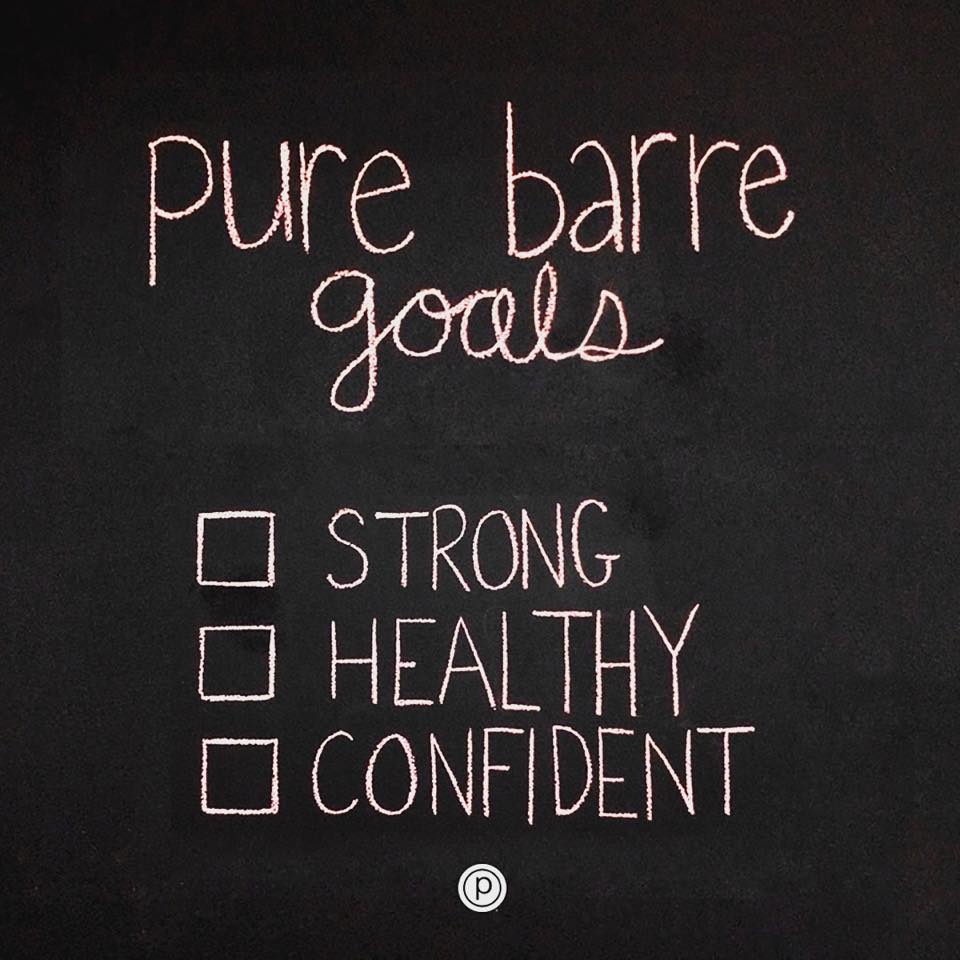 pure barre
goals
STRONG
HEALTHY
CONFIDENT
p